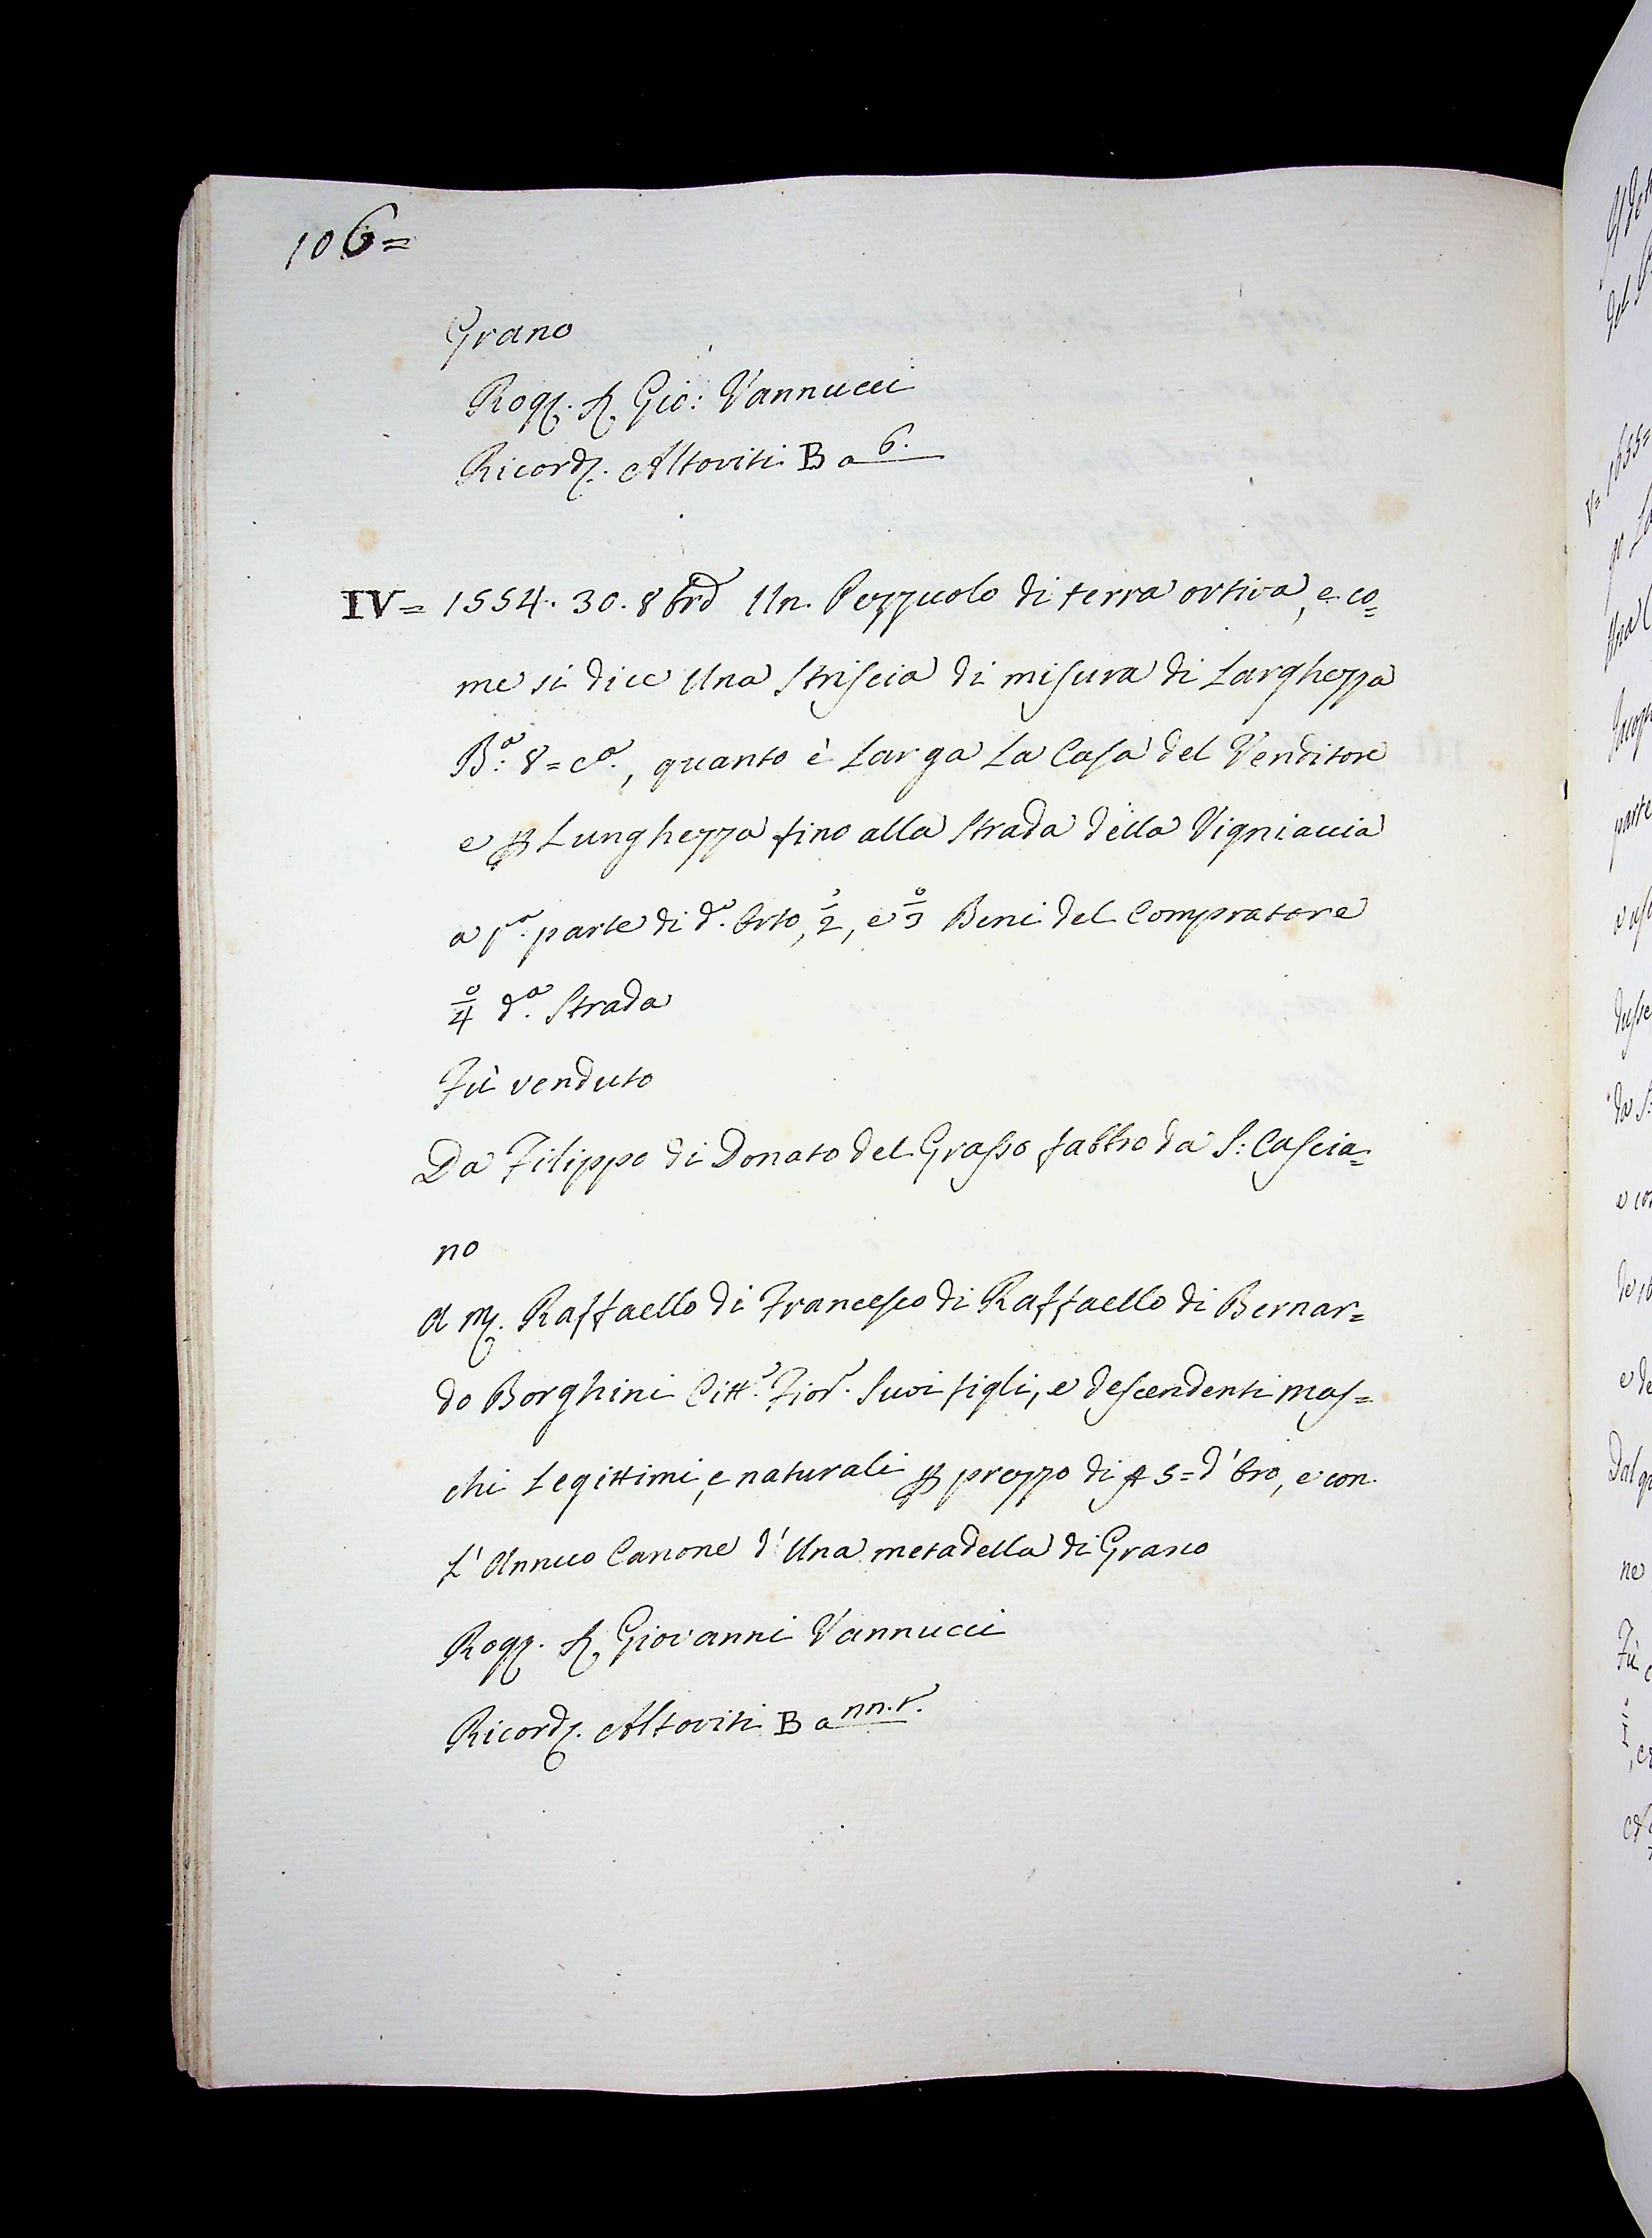 106=
Grano
Rogz. S. Gio: Vannucci
Ricordz. Altoviti B a 6.
IV= 1554. 30. 8bre Un. Pezzuolo di terra ortiva, e co=
me si dice Una Striscia di misura di Larghezza
B:a 8=ca., quanto è Larga La Casa del Venditore
e p Lunghezza fino alla Strada della Vigniaccia
a po. parte di do. Orto, 2, e 3 Beni del Compratore
4 da. Strada
Fù venduto
Da Filippo di Donato del Grasso fabbro da S: Cascia=
no
A mz. Raffaello di Francesco di Raffaello di Bernar=
do Borghini Citto. Fior. Suoi figli, e descendenti mas=
chi Legittimi, e naturali p prezzo di 5=d'Oro, e con.
L'Annuo Canone d'Una metadella di Grano
Rogz. S. Giovanni Vannucci
Ricordz. Altoviti B a